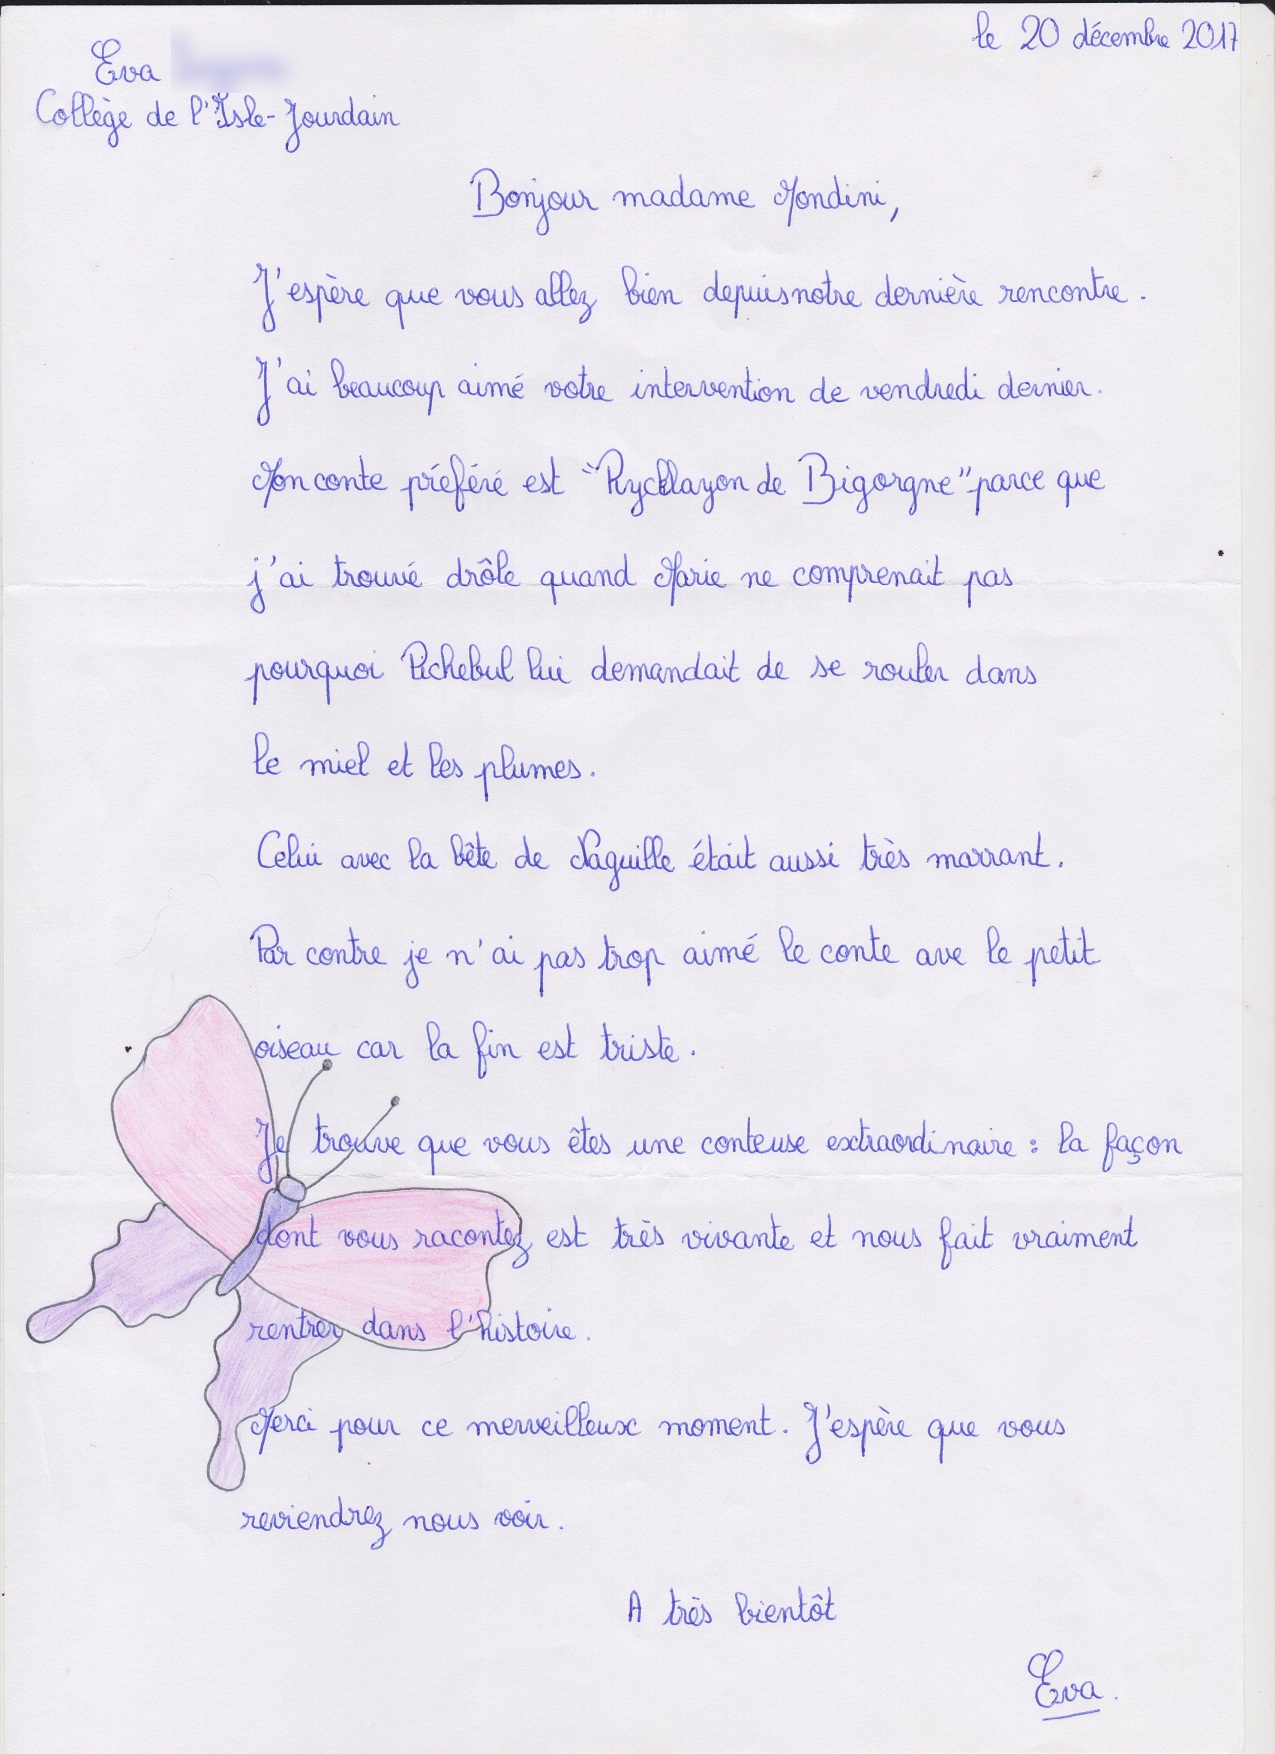 le 20 décembre 2017
Eva
Collège de l'Isle-Jourdain
Bonjour madame Mondini,
J'espère que vous allez bien depuis notre dernière rencontre.
J'ai beaucoup aimé votre intervention de vendredi dernier.
Mon conte préféré est "Ryckлayon de Bigorgne" parce que
j'ai trouvé drôle quand Marie ne comprenait pas
pourquoi Pichebul lui demandait de se rouler dans
le miel et les plumes.
Celui avec la bête de Naguille était aussi très marrant.
Par contre je n'ai pas trop aimé le conte ave le petit
oiseau car la fin est triste.
Je trouve que vous êtes une conteuse extraordinaire : la façon
dont vous racontez est très vivante et nous fait vraiment
rentrer dans l'histoire.
Merci pour ce merveilleux moment. J'espère que vous
reviendrez nous voir.
A très bientôt
Eva.